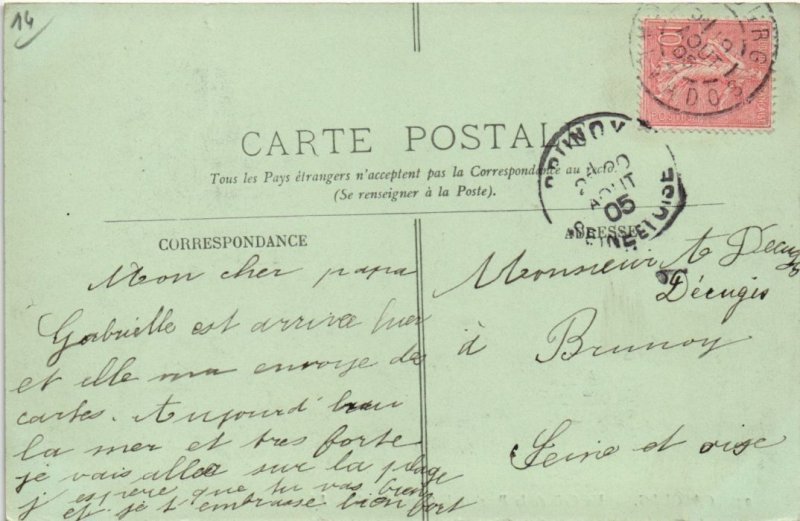 14
CARTE POSTALE
Tous les Pays étrangers n'acceptent pas la Correspondance au recto.
(Se renseigner à la Poste).
CORRESPONDANCE
Mon cher papa
Gabrielle est arrivée hier
et elle ma envoye des
cartes. Aujourd'hui
la mer et tres forte
je vais allee sur la plage
j'espere que tu vas bien
et je t'embrasse bien fort
ADRESSE
Monsieur A Decugis
Décugis
à Brunoy
Seine et oise
BRUNOY
AOUT
05
SEINE ET OISE
10
AOUT
05